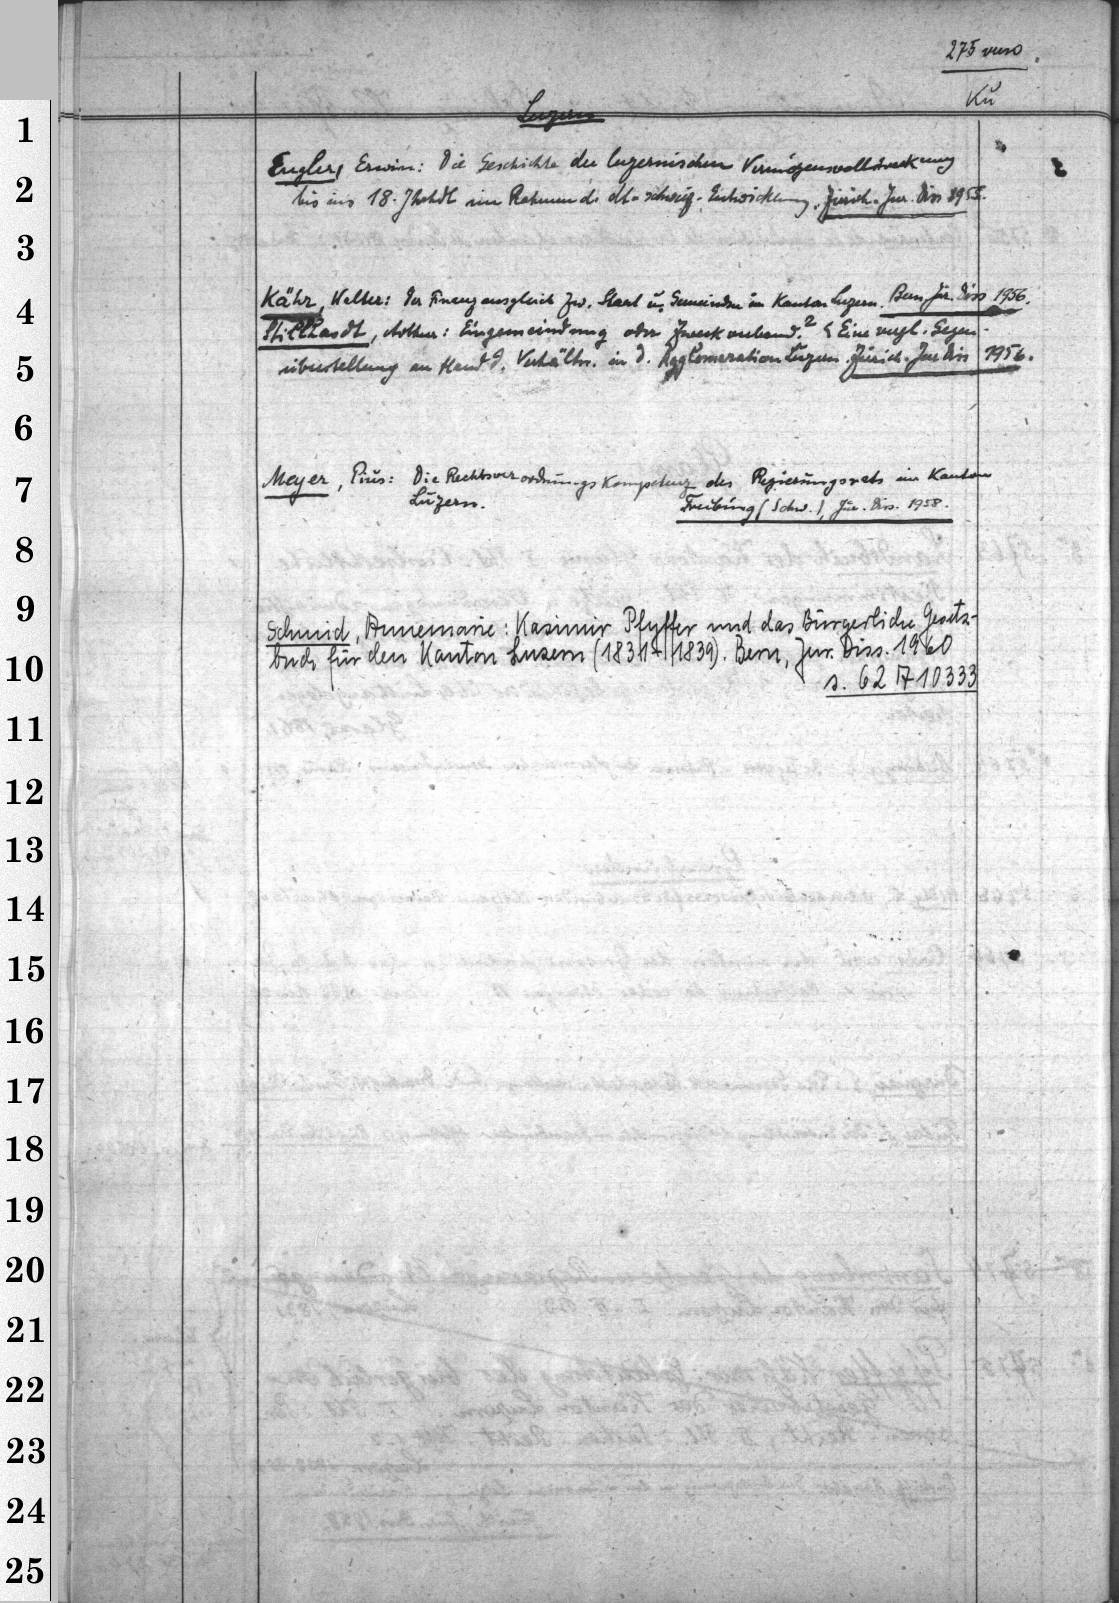 275 verso.
Ku
Luzern
Engler, Erwin: Die Geschichte der luzernischen Vermögensvollstreckung
bis ins 18. Jhrhdt im Rahmen d. dt.-schweiz. Entwicklung. Zürich. Jur. Diss 1955.
Kähr, Walter: Der Finanzausgleich zw. Staat u. Gemeinden im Kanton Luzern. Bern Jur. Diss 1956.
Stillhardt, Arthur: Eingemeindung oder Zweckverband? Eine vergl. Gegen-
überstellung an Hand d. Verhältn. in d. Agglomeration Luzern. Zürich. Jur Diss 1956.
Meyer, Pius: Die Rechtsverordnungskompetenz des Regierungsrats im Kanton
Luzern. Freiburg (Schw.), Jur. Diss. 1958.
Schmid, Annemarie: Kasimir Pfyffer und das Bürgerliche Gesetz-
buch für den Kanton Luzern (1831-1839). Bern, Jur. Diss. 1960
s. 62 A 10333
1
2
3
4
5
6
7
8
9
10
11
12
13
14
15
16
17
18
19
20
21
22
23
24
25